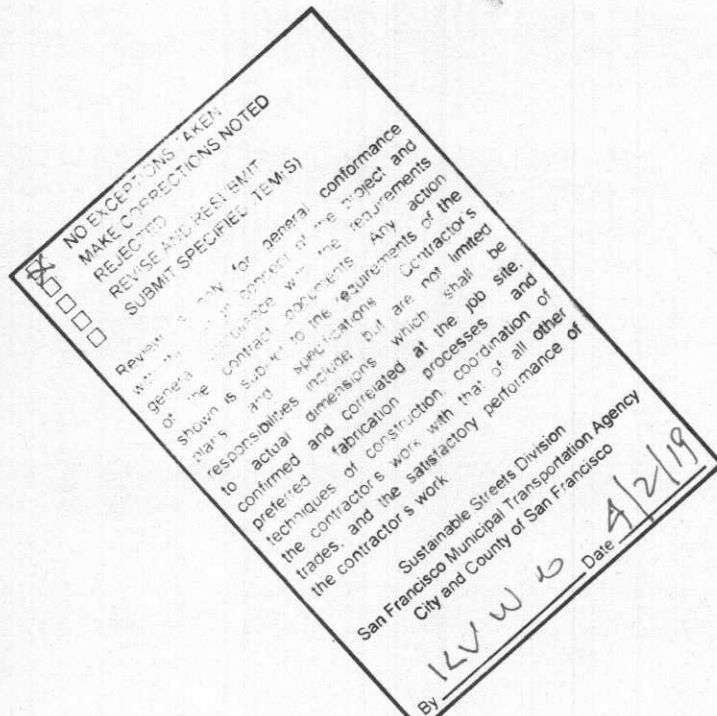 NO EXCEPTIONS TAKEN
MAKE CORRECTIONS NOTED
REJECTED
REVISE AND RESUBMIT
SUBMIT SPECIFIED ITEM(S)
Review is only for general conformance
with the concept of the project and
general with the requirements
of the contract documents. Any action
shown is subject to the requirements of the
plans and specifications. Contractor's
responsibilities include, but are not limited
to actual dimensions which shall be
confirmed and correlated at the job site,
preferred fabrication processes and
techniques of construction, coordination of
the contractor's work with that of all other
trades, and the satisfactory performance of
the contractor's work
Sustainable Streets Division
San Francisco Municipal Transportation Agency
City and County of San Francisco
By Date 4/2/19